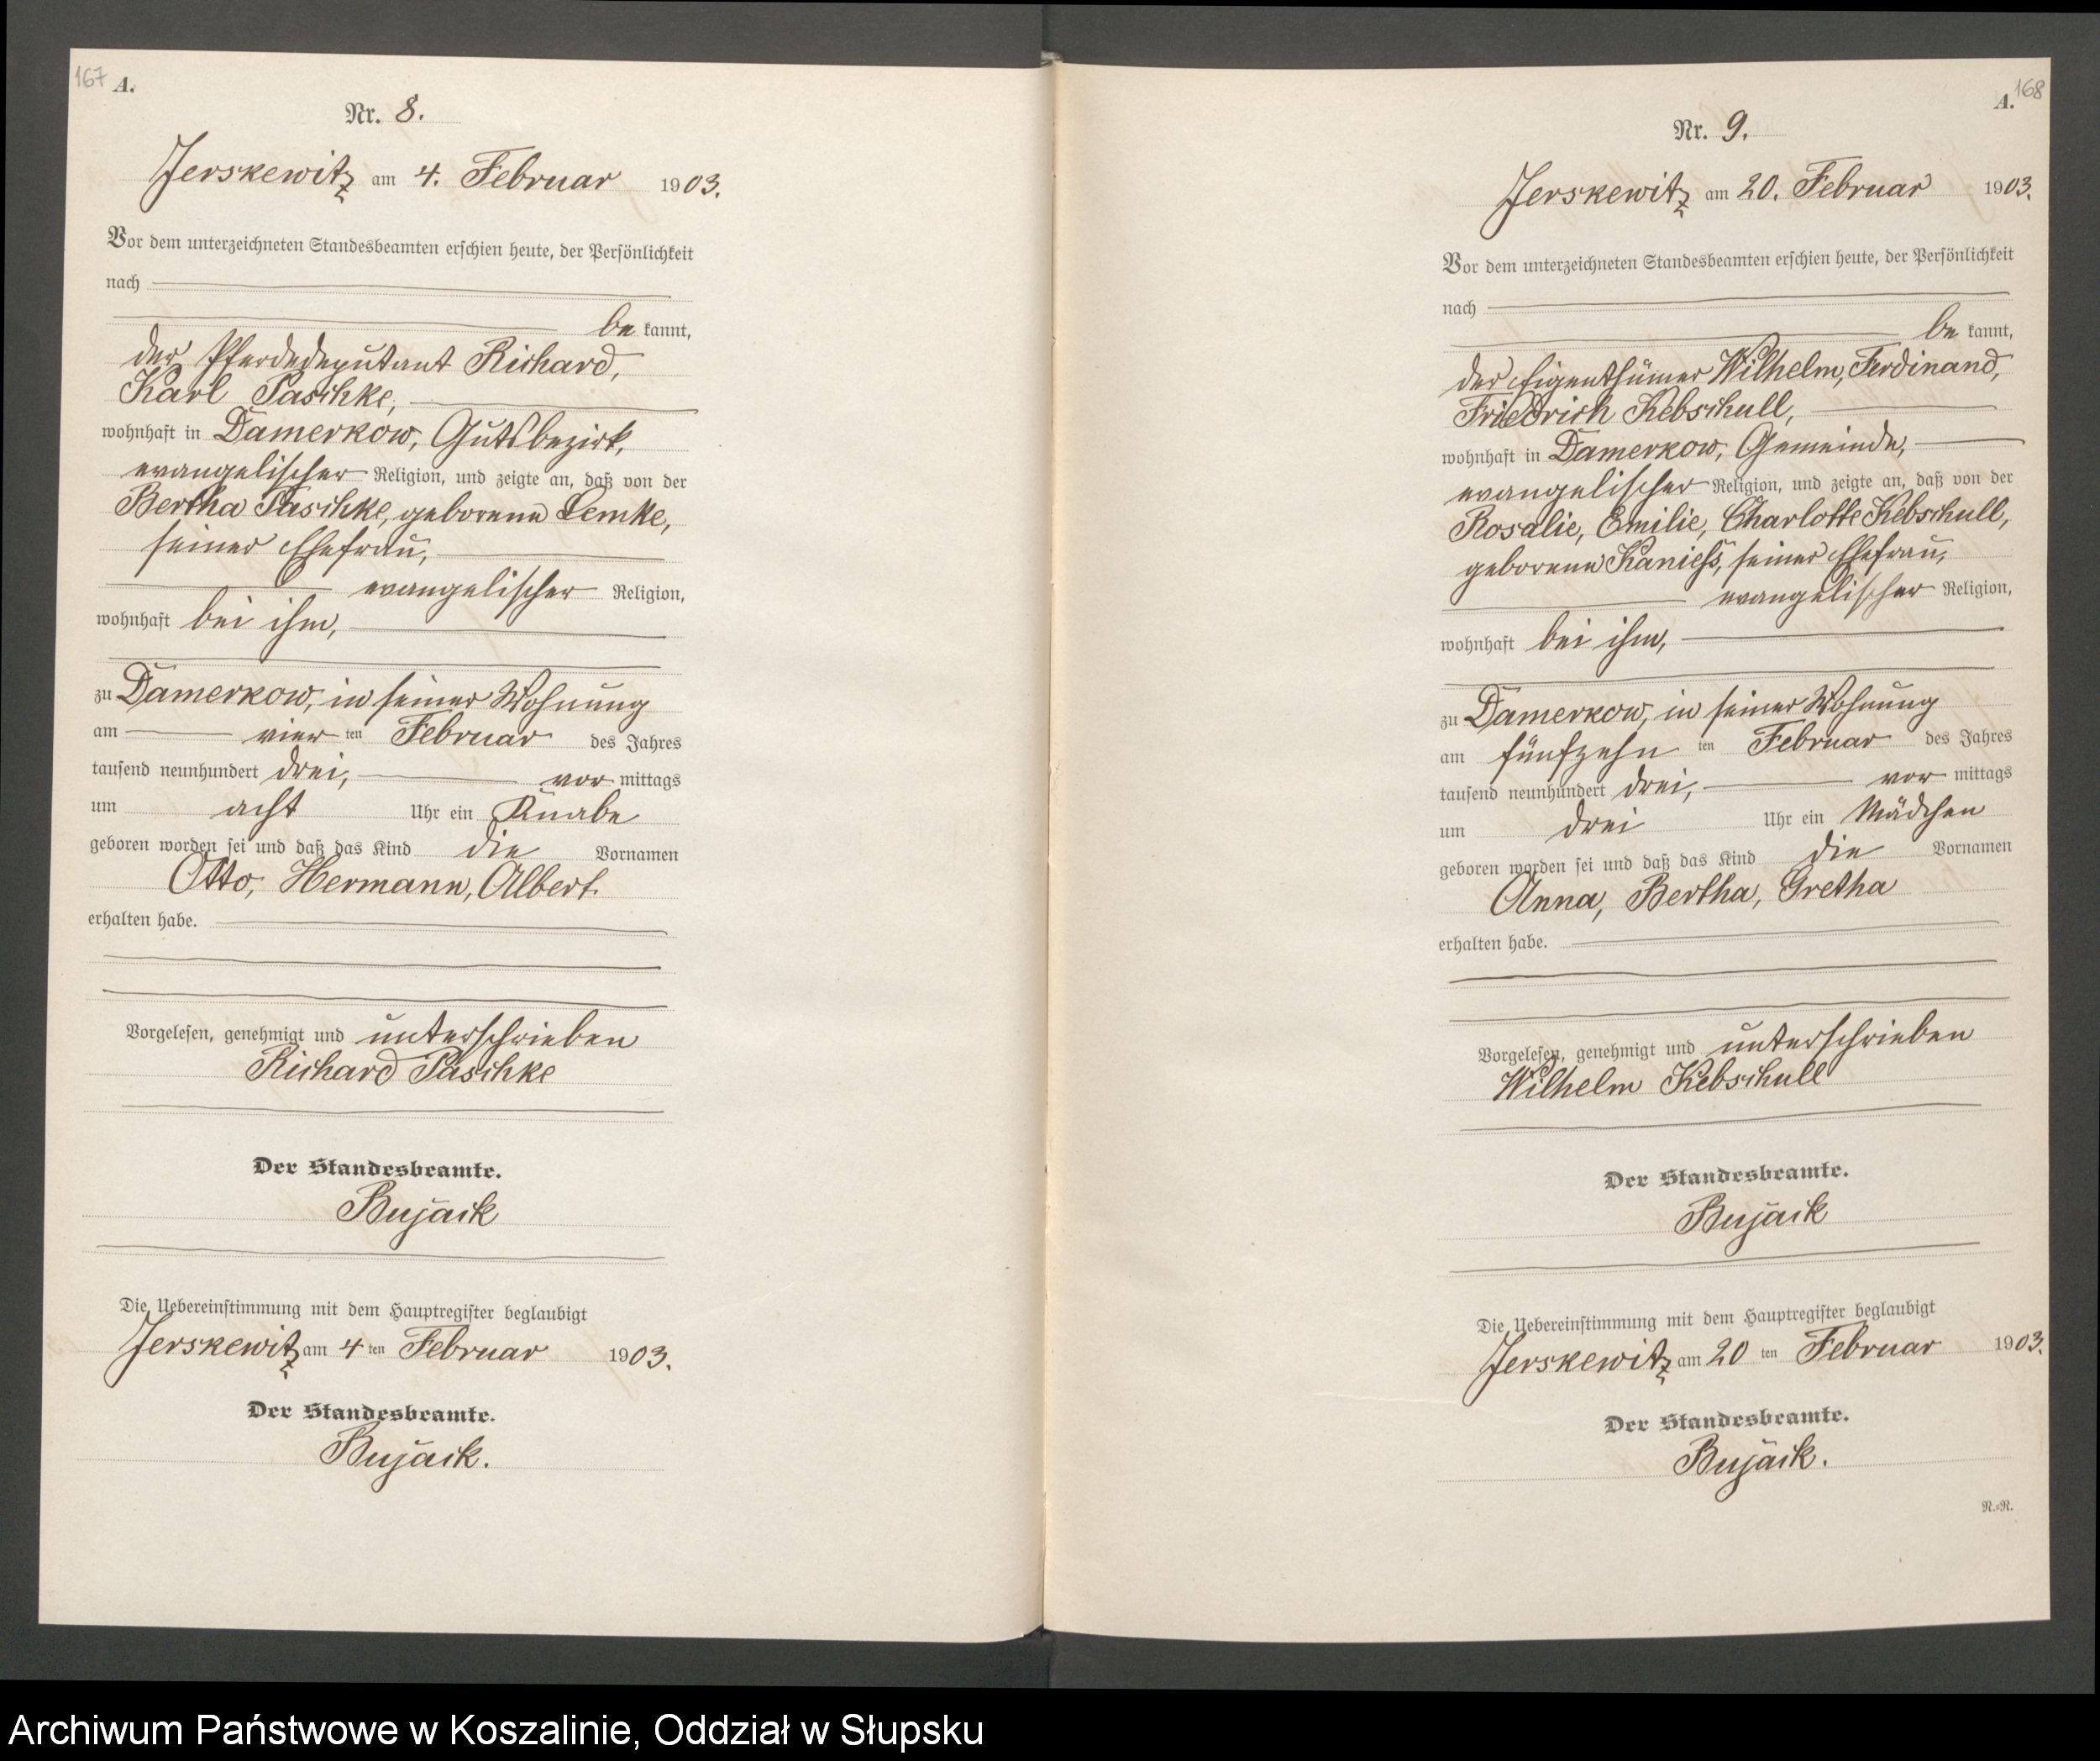 167 A.
Nr. 8.
Jerskewitz am 4. Februar 1903.
Vor dem unterzeichneten Standesbeamten erschien heute, der Persönlichkeit
nach
be kannt,
der Pferdedeputant Richard,
Karl Paschke,
wohnhaft in Damerkow, Gutsbezirk,
evangelischer Religion, und zeigte an, daß von der
Bertha Paschke, geborene Lemke,
seiner Ehefrau,
evangelischer Religion,
wohnhaft bei ihm,
zu Damerkow, in seiner Wohnung
am vier ten Februar des Jahres
tausend neunhundert drei, vor mittags
um acht Uhr ein Knabe
geboren worden sei und daß das Kind die Vornamen
Otto, Hermann, Albert.
erhalten habe.
Vorgelesen, genehmigt und unterschrieben
Richard Paschke
Der Standesbeamte.
Bujack
Die Uebereinstimmung mit dem Hauptregister beglaubigt
Jerskewitz am 4 ten Februar 1903.
Der Standesbeamte.
Bujack.
A. 168
Nr. 9.
Jerskewitz am 20. Februar 1903.
Vor dem unterzeichneten Standesbeamten erschien heute, der Persönlichkeit
nach
be kannt,
der Eigenthümer Wilhelm, Ferdinand,
Friedrich Kebschull,
wohnhaft in Damerkow, Gemeinde,
evangelischer Religion, und zeigte an, daß von der
Rosalie, Emilie, Charlotte Kebschull,
geborene Kaniess, seiner Ehefrau,
evangelischer Religion,
wohnhaft bei ihm,
zu Damerkow, in seiner Wohnung
am fünfzehn ten Februar des Jahres
tausend neunhundert drei, vor mittags
um drei Uhr ein Mädchen
geboren worden sei und daß das Kind die Vornamen
Anna, Bertha, Gretha
erhalten habe.
Vorgelesen, genehmigt und unterschrieben
Wilhelm Kebschull
Der Standesbeamte.
Bujack
Die Uebereinstimmung mit dem Hauptregister beglaubigt
Jerskewitz am 20 ten Februar 1903.
Der Standesbeamte.
Bujack.
N.=R.
Archiwum Państwowe w Koszalinie, Oddział w Słupsku